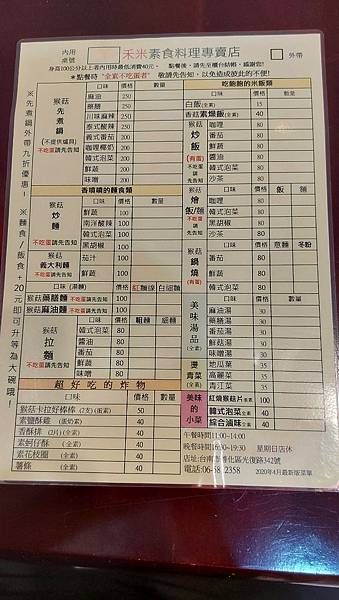 內用
桌號
禾米素食料理專賣店
外帶
身高100公分以上者內用時最低消費40元。 點餐後,請先至櫃台結帳,感謝您!
*點餐時"全素不吃蛋者"敬請先告知,以免造成彼此的不便!
※先煮鍋外帶九折優惠!
※麵食/飯食+20元即可升等為大碗哦!
口味 價格 數量
猴菇先煮鍋
(不提供爐具)
不吃蛋請先告知
麻油 250
藥膳 250
川味麻辣 250
泰式酸辣 200
義式番茄 200
咖哩椰奶 200
韓式泡菜 200
鮮蔬 200
味噌 200
香噴噴的麵食類
口味 價格 數量
猴菇炒麵
不吃蛋請先告知
鮮蔬 100
南洋酸辣 100
韓式泡菜 100
黑胡椒 100
猴菇義大利麵
不吃蛋請先告知
茄汁 100
鮮蔬 100
口味(湯麵) 價格 紅麵線 白細麵
猴菇藥膳麵 不吃蛋請先告知 100
猴菇麻油麵 不吃蛋請先告知 100
口味 價格 粗麵 細麵
猴菇拉麵
不吃蛋請先告知
韓式泡菜 80
醬油 80
番茄 80
鮮蔬 80
味噌 80
超好吃的炸物
口味 價格 數量
猴菇卡拉好棒棒(2支)(蛋素) 50
素鹽酥雞(蛋奶素) 40
香酥排(2片)(全素) 40
素蚵仔酥(全素) 40
素花枝圈(全素) 40
薯條(全素) 40
吃飽飽的米飯類
口味 價格 數量
白飯(全素) 15
香菇素燥飯(全素) 40
猴菇炒飯
(有蛋)
不吃蛋請先告知
咖哩 80
番茄 80
醬油 80
鮮蔬 80
韓式泡菜 80
沙茶 80
猴菇燴飯/麵
不吃蛋請先告知
口味 價格 飯 麵
咖哩 80
鮮蔬 80
韓式泡菜 80
黑胡椒 80
沙茶 80
猴菇鍋燒
(有蛋)
口味 價格 意麵 冬粉
番茄 80
韓式泡菜 80
鮮蔬 80
口味 價格 數量
美味湯品
(全素)
麻油湯 30
藥膳湯 30
番茄湯 30
鮮菇湯 30
味噌湯 30
燙青菜
(全素)
地瓜葉 35
高麗菜 35
青江菜 35
美味的小菜
紅燒猴菇片(蛋素) 100
韓式泡菜(全素) 40
綜合滷味(全素) 40
午餐時間11:00-14:00
晚餐時間16:30-19:30 星期日店休
店址:台南市善化區光復路342號
電話:06-58 2358 2020年4月最新版菜單